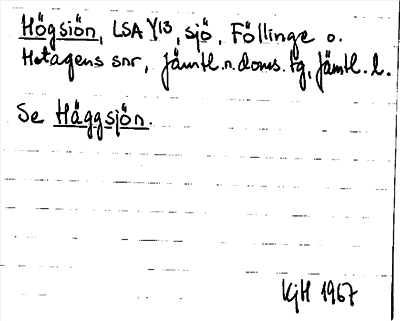 Högsjön, LSA Y13, sjö, Föllinge o.
Hotagens snr, Jämtl. n. doms. tg, Jämtl. l.
Se Häggsjön.
KjH 1967